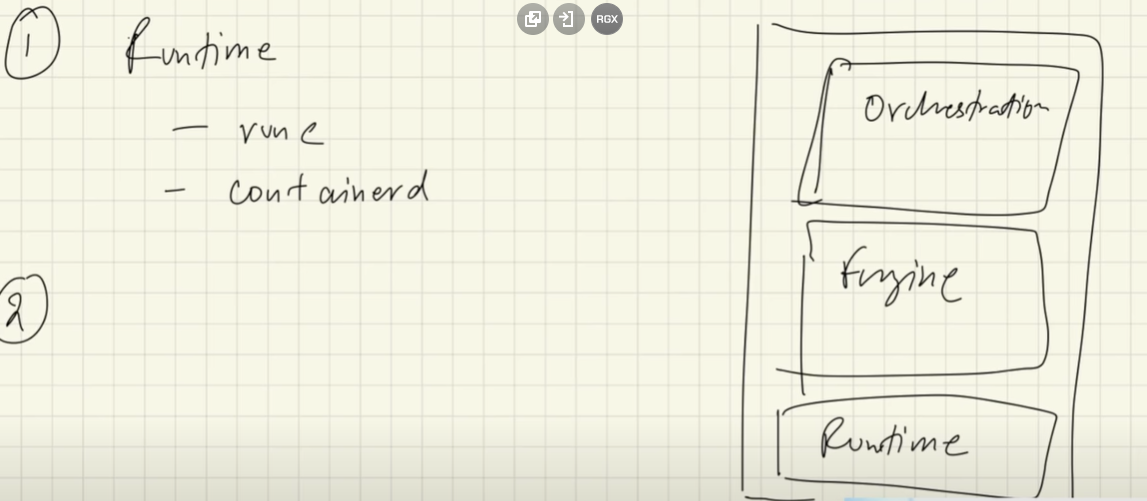 1 Runtime
- runc
- containerd
2
RGX
Orchestration
Engine
Runtime